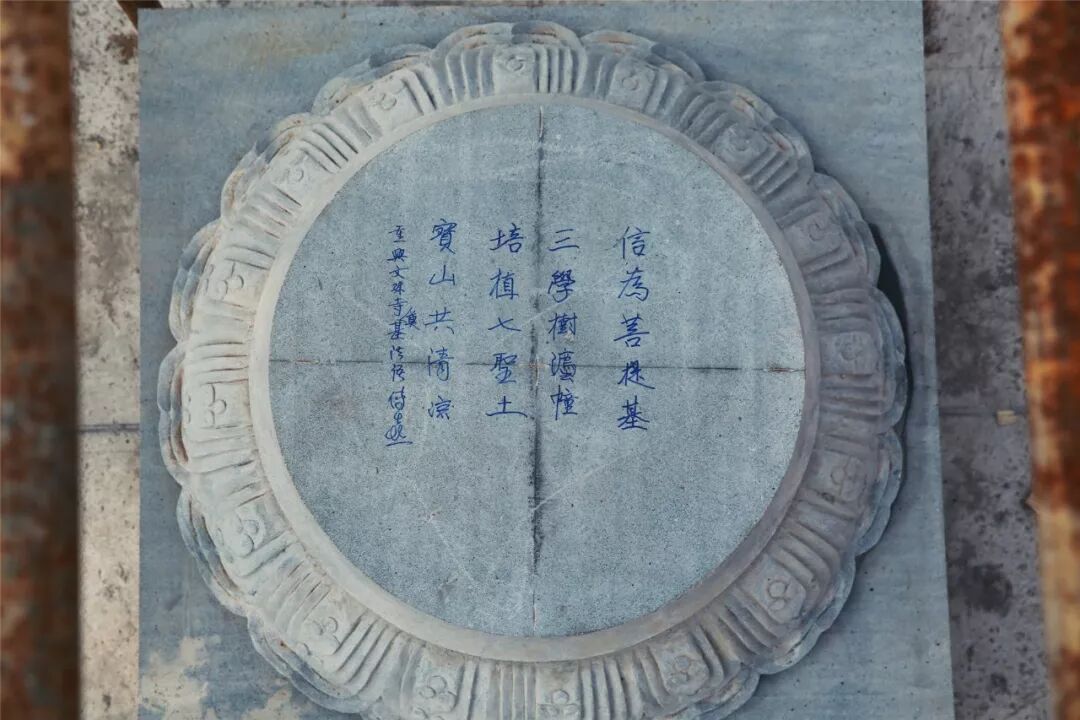 信為菩提基
三學樹靈幢
培植七聖土
寶山共清涼
至興文殊寺奠基法語